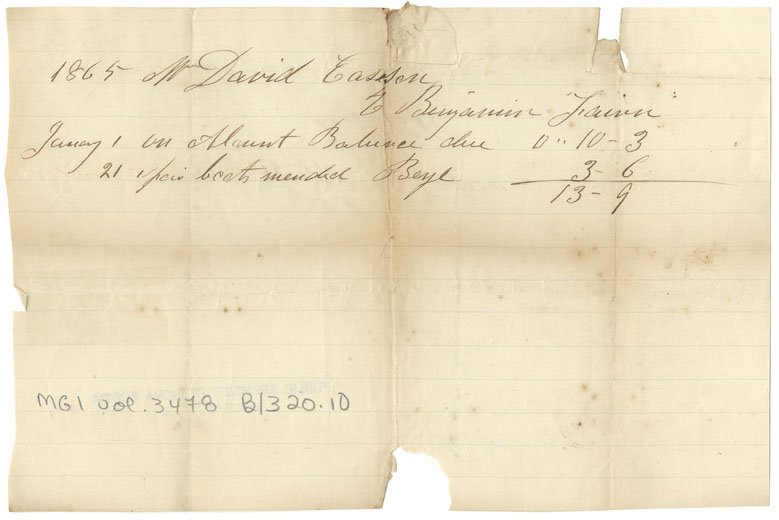 1865 Mr David Easson
To Benjamin "Fairn"
Janay 1 on Acount Balance due 0 " 10 - 3
21 1 pair boots mended Boys 3 - 6
13 - 9
MG1 vol. 3478 B/320.10